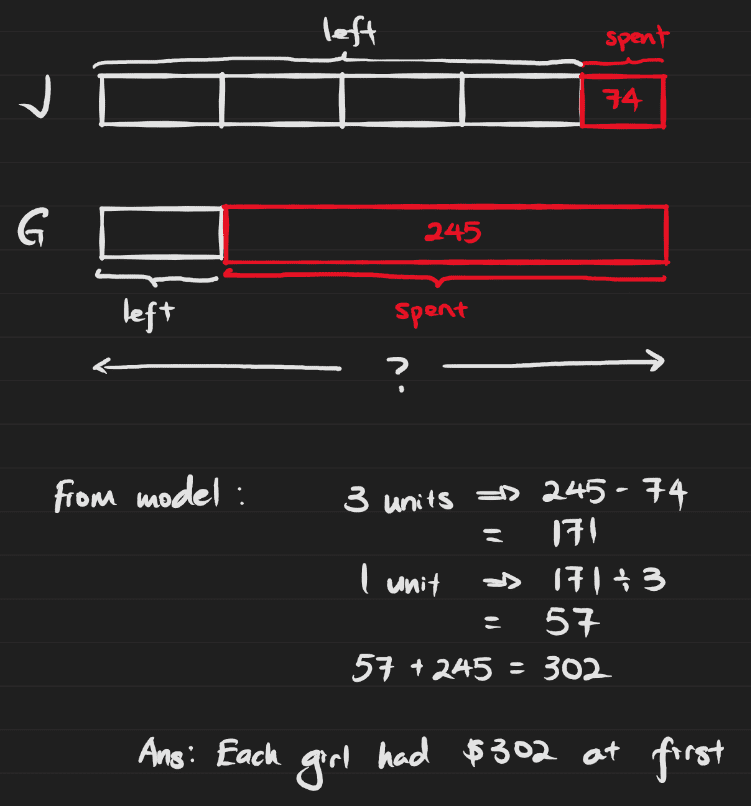 left spent
J 74
G 245
left spent
?
From model : 3 units ⇒ 245 - 74
= 171
1 unit ⇒ 171 ÷ 3
= 57
57 + 245 = 302
Ans: Each girl had $302 at first